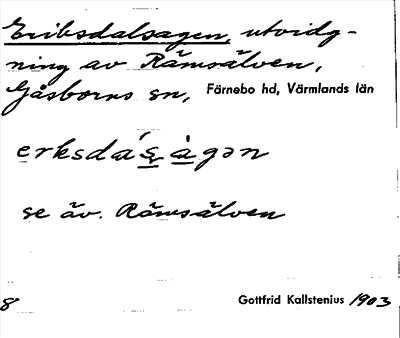 Eriksdalsagen, utvidg-
ning av Rämsälven,
Gåsborns sn, Färnebo hd, Värmlands län
erksda´s àgən
se äv. Rämsälven
8 Gottfrid Kallstenius 1903